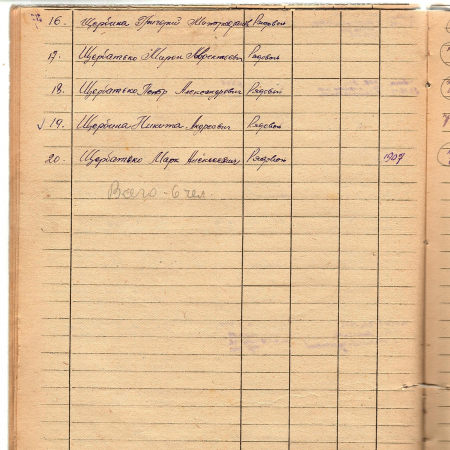 16. Щербина Григорий Митрофанов Рядовой
17. Щербатько Мирон Лаврентьевич Рядовой
18. Щербатько Петр Александрович Рядовой
√ 19. Щербина Никита Андреевич Рядовой
20. Щербатько Марк Алексеевич Рядовой 1907
Всего - 6 чел.